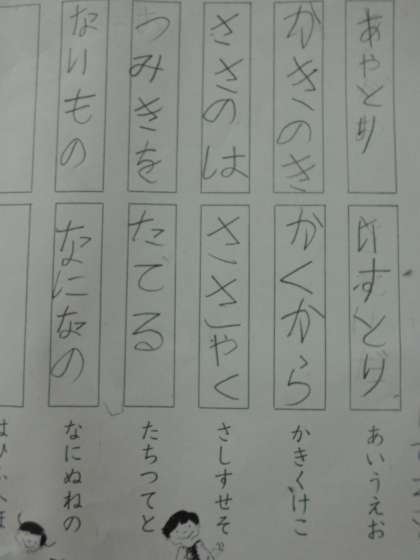 あやとり
いすとり
あいうえお
かきのき
かくから
かきくけこ
ささのは
ささやく
さしすせそ
つみきを
たてる
たちつてと
ないもの
なになの
なにぬねの